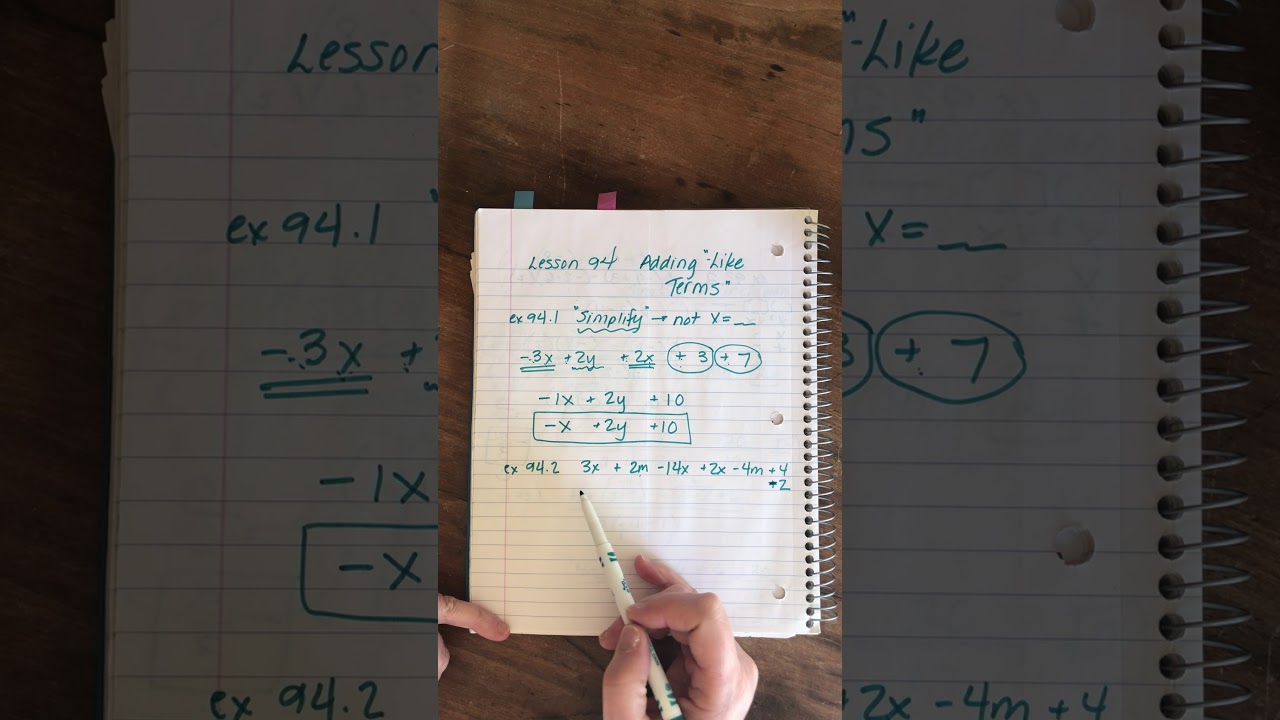 Lesson 94 Adding "Like
Terms"
ex 94.1 "Simplify" → not x = __
-3x +2y +2x +3 +7
-1x + 2y +10
-x +2y +10
ex 94.2 3x + 2m -14x +2x -4m +4
+2